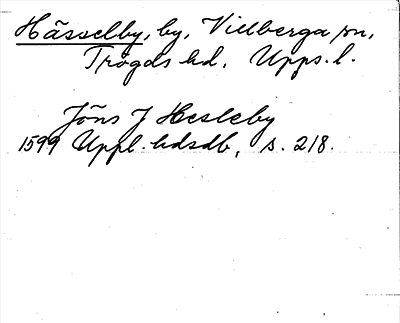 Hässelby, by, Villberga sn,
Trögds hd, Upps. l.
Jöns J Hesleby
1599 Uppl. hdsdb, s. 218.